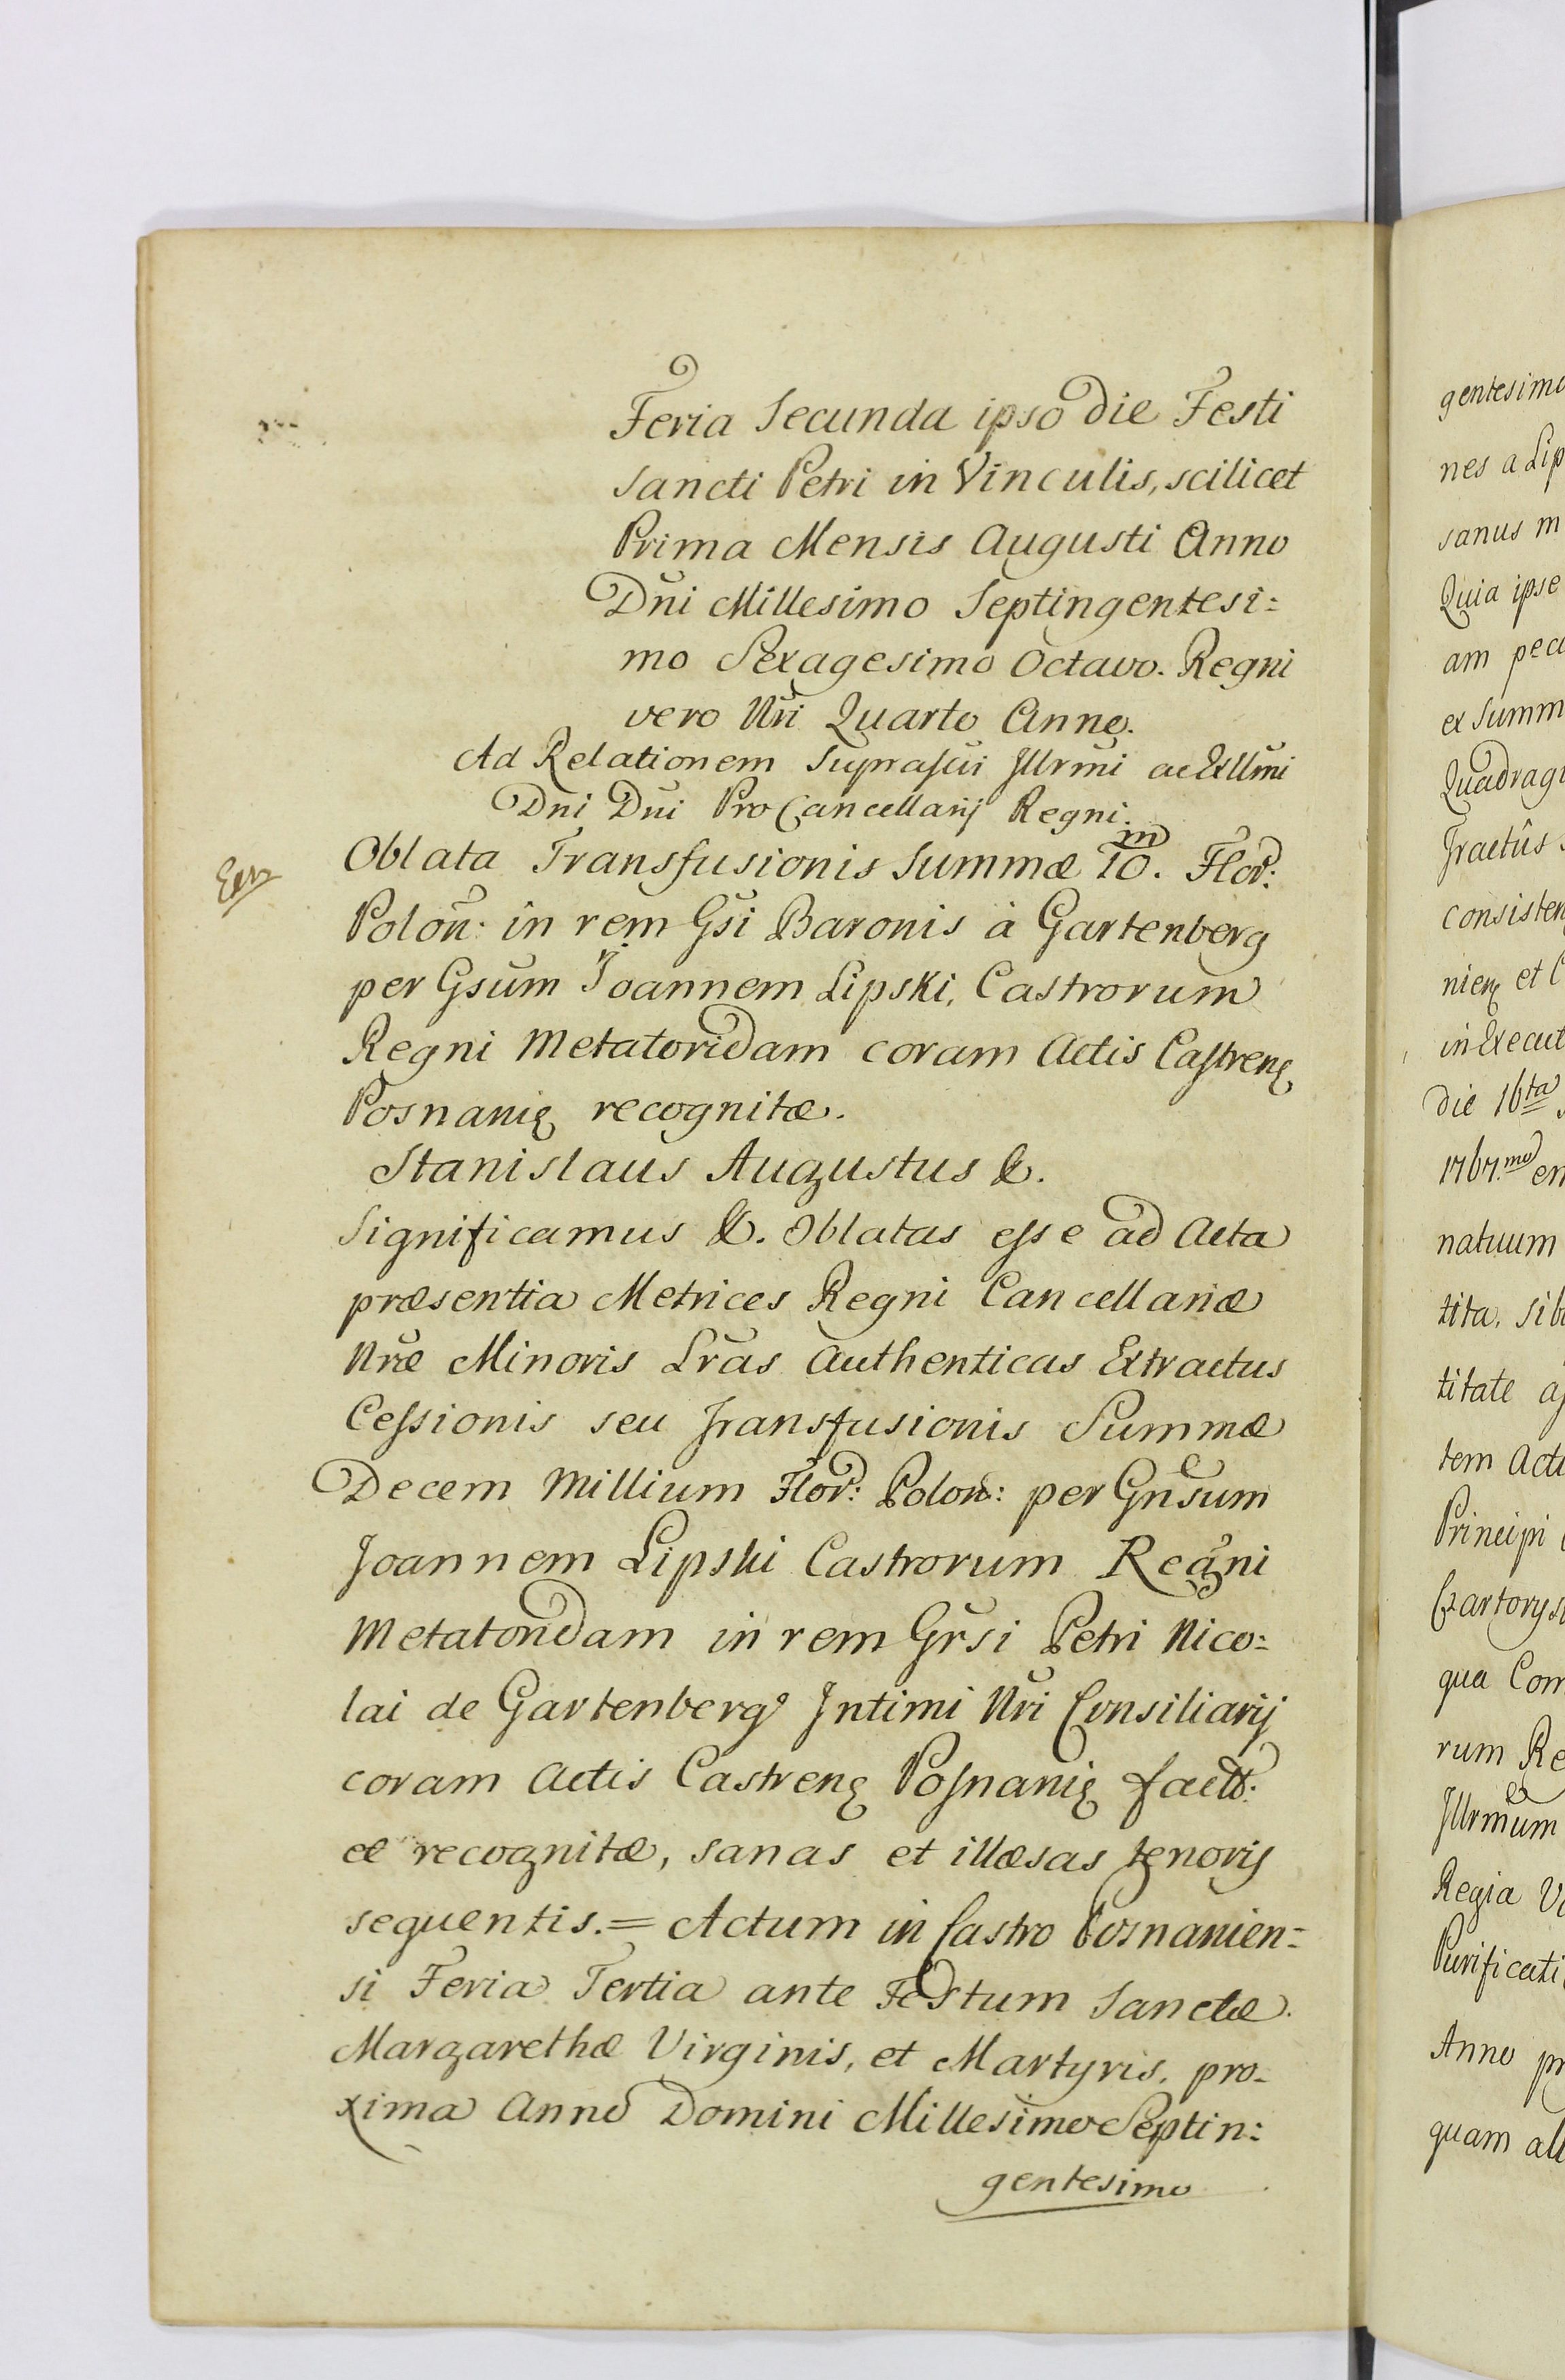 Feria Secunda ipso die Festi
Sancti Petri in Vinculis, scilicet
Prima Mensis Augusti Anno
Dni Millesimo Septingentesi=
mo Sexagesimo Octavo. Regni
vero Nri Quarto Anno.
Ad Relationem Suprascri Illrmi ac Exllmi
Dni Dni Pro Cancellarij Regni.
Oblata Transfusionis Summæ 10.m Flor:
Polon: in rem Gsi Baronis à Gartenberg
per Gsum Joannem Lipski, Castrorum
Regni Metatoridam coram Actis Castrenę
Posnanię recognitæ.
Stanislaus Augustus &.
Significamus &. Oblatas esse ad Acta
præsentia Metrices Regni Cancellariæ
Nræ Minoris Lras Authenticas Extractus
Cessionis seu Transfusionis Summæ
Decem Millium Flor: Polon: per Gnsum
Joannem Lipski Castrorum Regni
Metatoridam in rem Grsi Petri Nico=
lai de Gartenberg Intimi Nri Consiliarij
coram Actis Castrenę Posnanię fact:
æ recognitæ, sanas et illæsas tenoris
sequentis.= Actum in Castro Posnanien=
si Feria Tertia ante Festum Sanctæ
Margarethæ Virginis, et Martyris, pro-
xima Anno Domini Millesimo Septin:
gentesimo
gentesimo
nes a Lip
sanus m
Quia ipse
am pecu
ex Summ
Quadragi
Tractûs
consisten
nienę et C
in Execut
die 16ta
1767.mo en
natuum
tita, sibi
titate
tem Acti
Principi
Czartorys
qua Com
rum Re
Illrmum
Regia V
Purificati
Anno pr
quam ali